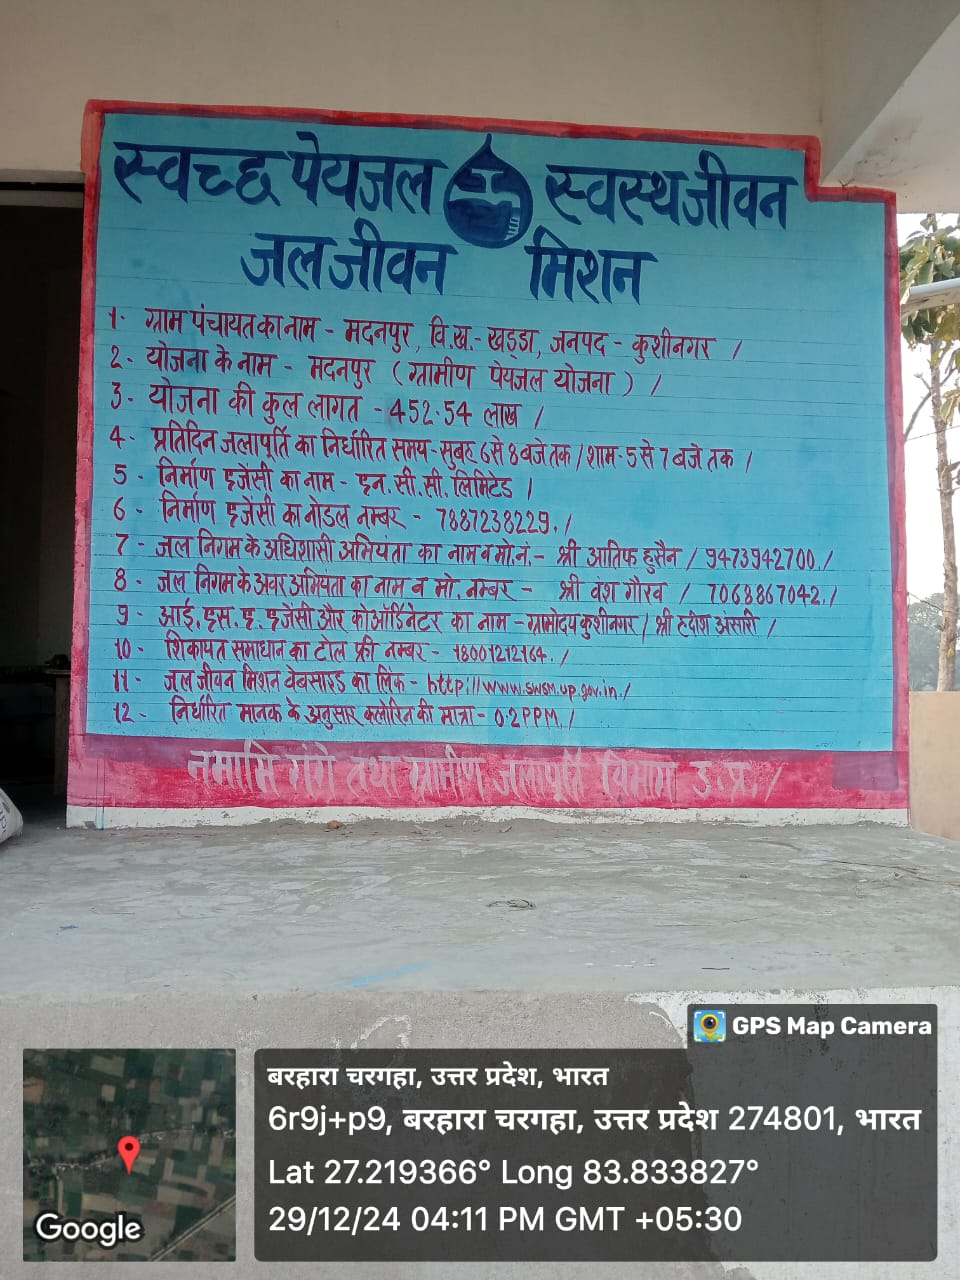 स्वच्छ पेयजल स्वस्थ जीवन
जल जीवन मिशन
1- ग्राम पंचायत का नाम - मदनपुर, वि.ख.- खड्डा, जनपद - कुशीनगर /
2- योजना के नाम - मदनपुर (ग्रामीण पेयजल योजना) /
3- योजना की कुल लागत - 452.54 लाख /
4- प्रतिदिन जलापूर्ति का निर्धारित समय - सुबह 6 से 8 बजे तक / शाम - 5 से 7 बजे तक /
5- निर्माण एजेंसी का नाम - एन.सी.सी. लिमिटेड /
6- निर्माण एजेंसी का नोडल नम्बर - 7887238229. /
7- जल निगम के अधिशासी अभियंता का नाम व मो.नं.- श्री आतिफ हुसैन / 9473942700. /
8- जल निगम के अवर अभियंता का नाम व मो. नम्बर - श्री वंश गौरव / 7068867042. /
9- आई.एस.ए. एजेंसी और कोऑर्डिनेटर का नाम - ग्रामोदय कुशीनगर / श्री हदीश अंसारी /
10- शिकायत समाधान का टोल फ्री नम्बर - 18001212164. /
11- जल जीवन मिशन वेबसाइड का लिंक - http://www.swsm.up.gov.in. /
12- निर्धारित मानक के अनुसार क्लोरिन की मात्रा - 0.2 PPM. /
नमामि गंगे तथा ग्रामीण जलापूर्ति विभाग उ.प्र. /
GPS Map Camera
बरहारा चरगहा, उत्तर प्रदेश, भारत
6r9j+p9, बरहारा चरगहा, उत्तर प्रदेश 274801, भारत
Lat 27.219366° Long 83.833827°
29/12/24 04:11 PM GMT +05:30
Google